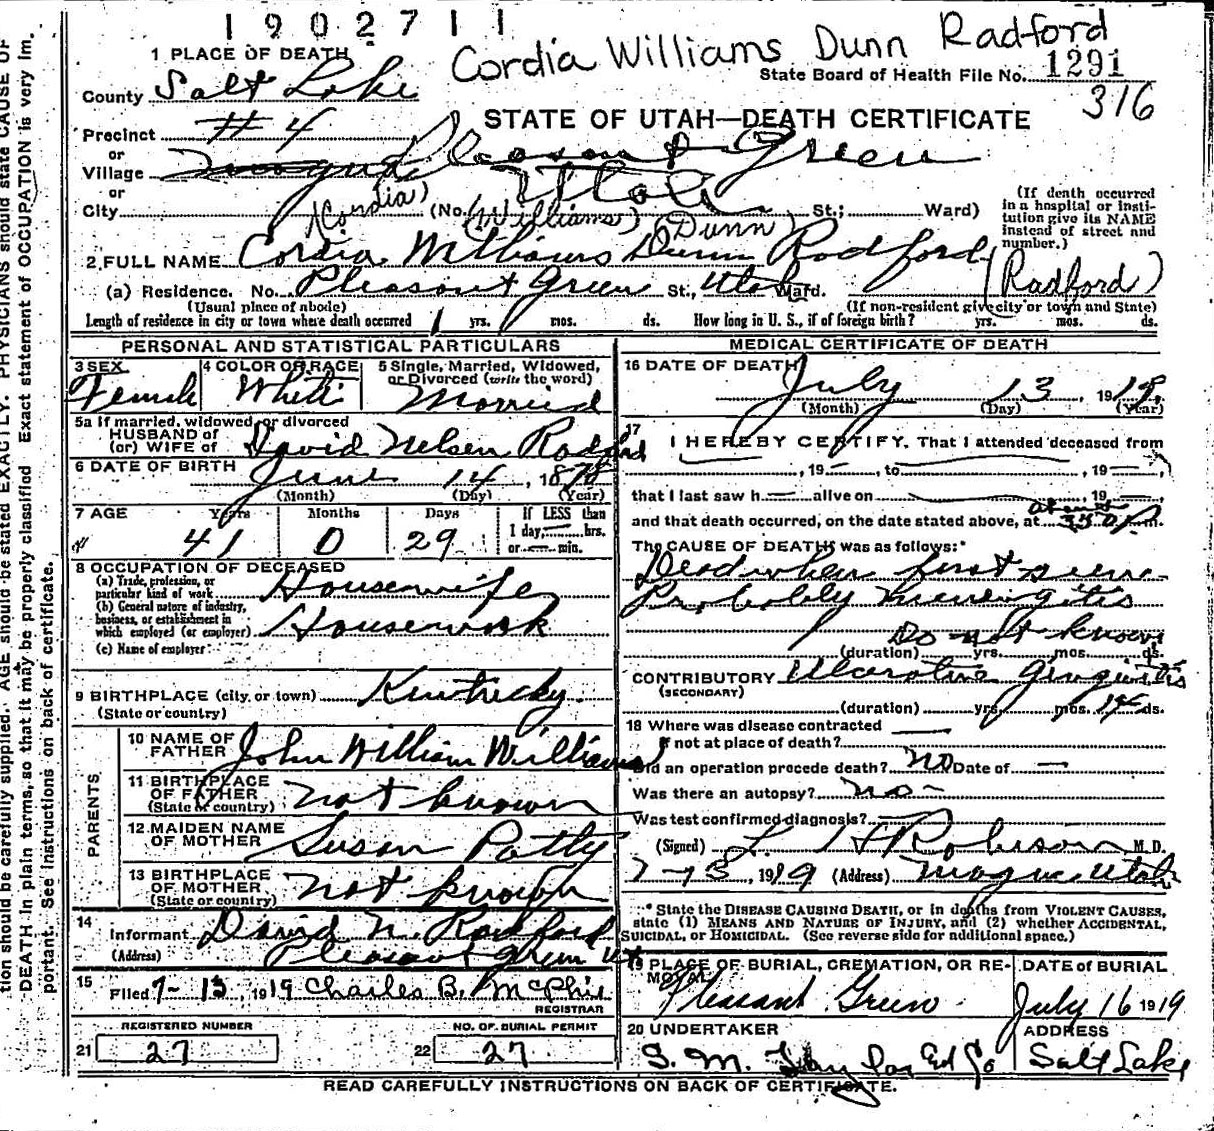 1902711
Cordia Williams Dunn Radford
1 PLACE OF DEATH
State Board of Health File No. 1291
316
County Salt Lake
STATE OF UTAH—DEATH CERTIFICATE
Precinct #4
or
Village Magna Pleasant Green
or
Utah
(Cordia) (Williams) (Dunn)
City (No. St.; Ward)
(If death occurred in a hospital or institution give its NAME instead of street and number.)
2 FULL NAME Cordia Williams Dunn Radford
(Radford)
(a) Residence. No. Pleasant Green St., Utah Ward.
(Usual place of abode) (If non-resident give city or town and State)
Length of residence in city or town where death occurred 1 yrs. mos. ds. How long in U. S., if of foreign birth? yrs. mos. ds.
PERSONAL AND STATISTICAL PARTICULARS
3 SEX Female
4 COLOR OR RACE White
5 Single, Married, Widowed, or Divorced (write the word) Married
5a If married, widowed, or divorced
HUSBAND of
(or) WIFE of David Nelsen Radford
6 DATE OF BIRTH June 14, 1878
(Month) (Day) (Year)
7 AGE Years Months Days
41 0 29
If LESS than 1 day, hrs. or min.
8 OCCUPATION OF DECEASED
(a) Trade, profession, or particular kind of work Housewife
(b) General nature of industry, business, or establishment in which employed (or employer) Housework
(c) Name of employer
9 BIRTHPLACE (city, or town) Kentucky
(State or country)
PARENTS
10 NAME OF FATHER John William Williams
11 BIRTHPLACE OF FATHER (State or country) not known
12 MAIDEN NAME OF MOTHER Susan Patty
13 BIRTHPLACE OF MOTHER (State or country) not known
14 Informant David N. Radford
(Address) Pleasant Green Ut
15 Filed 7-13, 1919 Charles B. McPhie
REGISTRAR
REGISTERED NUMBER
21 27
NO. OF BURIAL PERMIT
22 27
MEDICAL CERTIFICATE OF DEATH
16 DATE OF DEATH July 13 1919
(Month) (Day) (Year)
17 I HEREBY CERTIFY, That I attended deceased from
, 19 , to , 19
that I last saw h alive on , 19
and that death occurred, on the date stated above, at about 330 P. m.
The CAUSE OF DEATH was as follows:*
Dead when first seen.
Probably meningitis
Do not know
(duration) yrs. mos. ds.
CONTRIBUTORY Ulcerative Gingivitis
(SECONDARY)
(duration) yrs. mos. 14 ds.
18 Where was disease contracted
if not at place of death?
Did an operation precede death? No Date of —
Was there an autopsy? no-
Was test confirmed diagnosis?
(Signed) L. H Robinson M. D.
7-13, 1919 (Address) Magna Utah
* State the DISEASE CAUSING DEATH, or in deaths from VIOLENT CAUSES,
state (1) MEANS AND NATURE OF INJURY, and (2) whether ACCIDENTAL,
SUICIDAL, or HOMICIDAL. (See reverse side for additional space.)
19 PLACE OF BURIAL, CREMATION, OR REMOVAL Pleasant Green
DATE of BURIAL July 16 1919
20 UNDERTAKER S. M. Taylor Co
ADDRESS Salt Lake
READ CAREFULLY INSTRUCTIONS ON BACK OF CERTIFICATE.
tion should be carefully supplied. AGE should be stated EXACTLY. PHYSICIANS should state CAUSE OF
DEATH in plain terms, so that it may be properly classified. Exact statement of OCCUPATION is very im.
portant. See instructions on back of certificate.